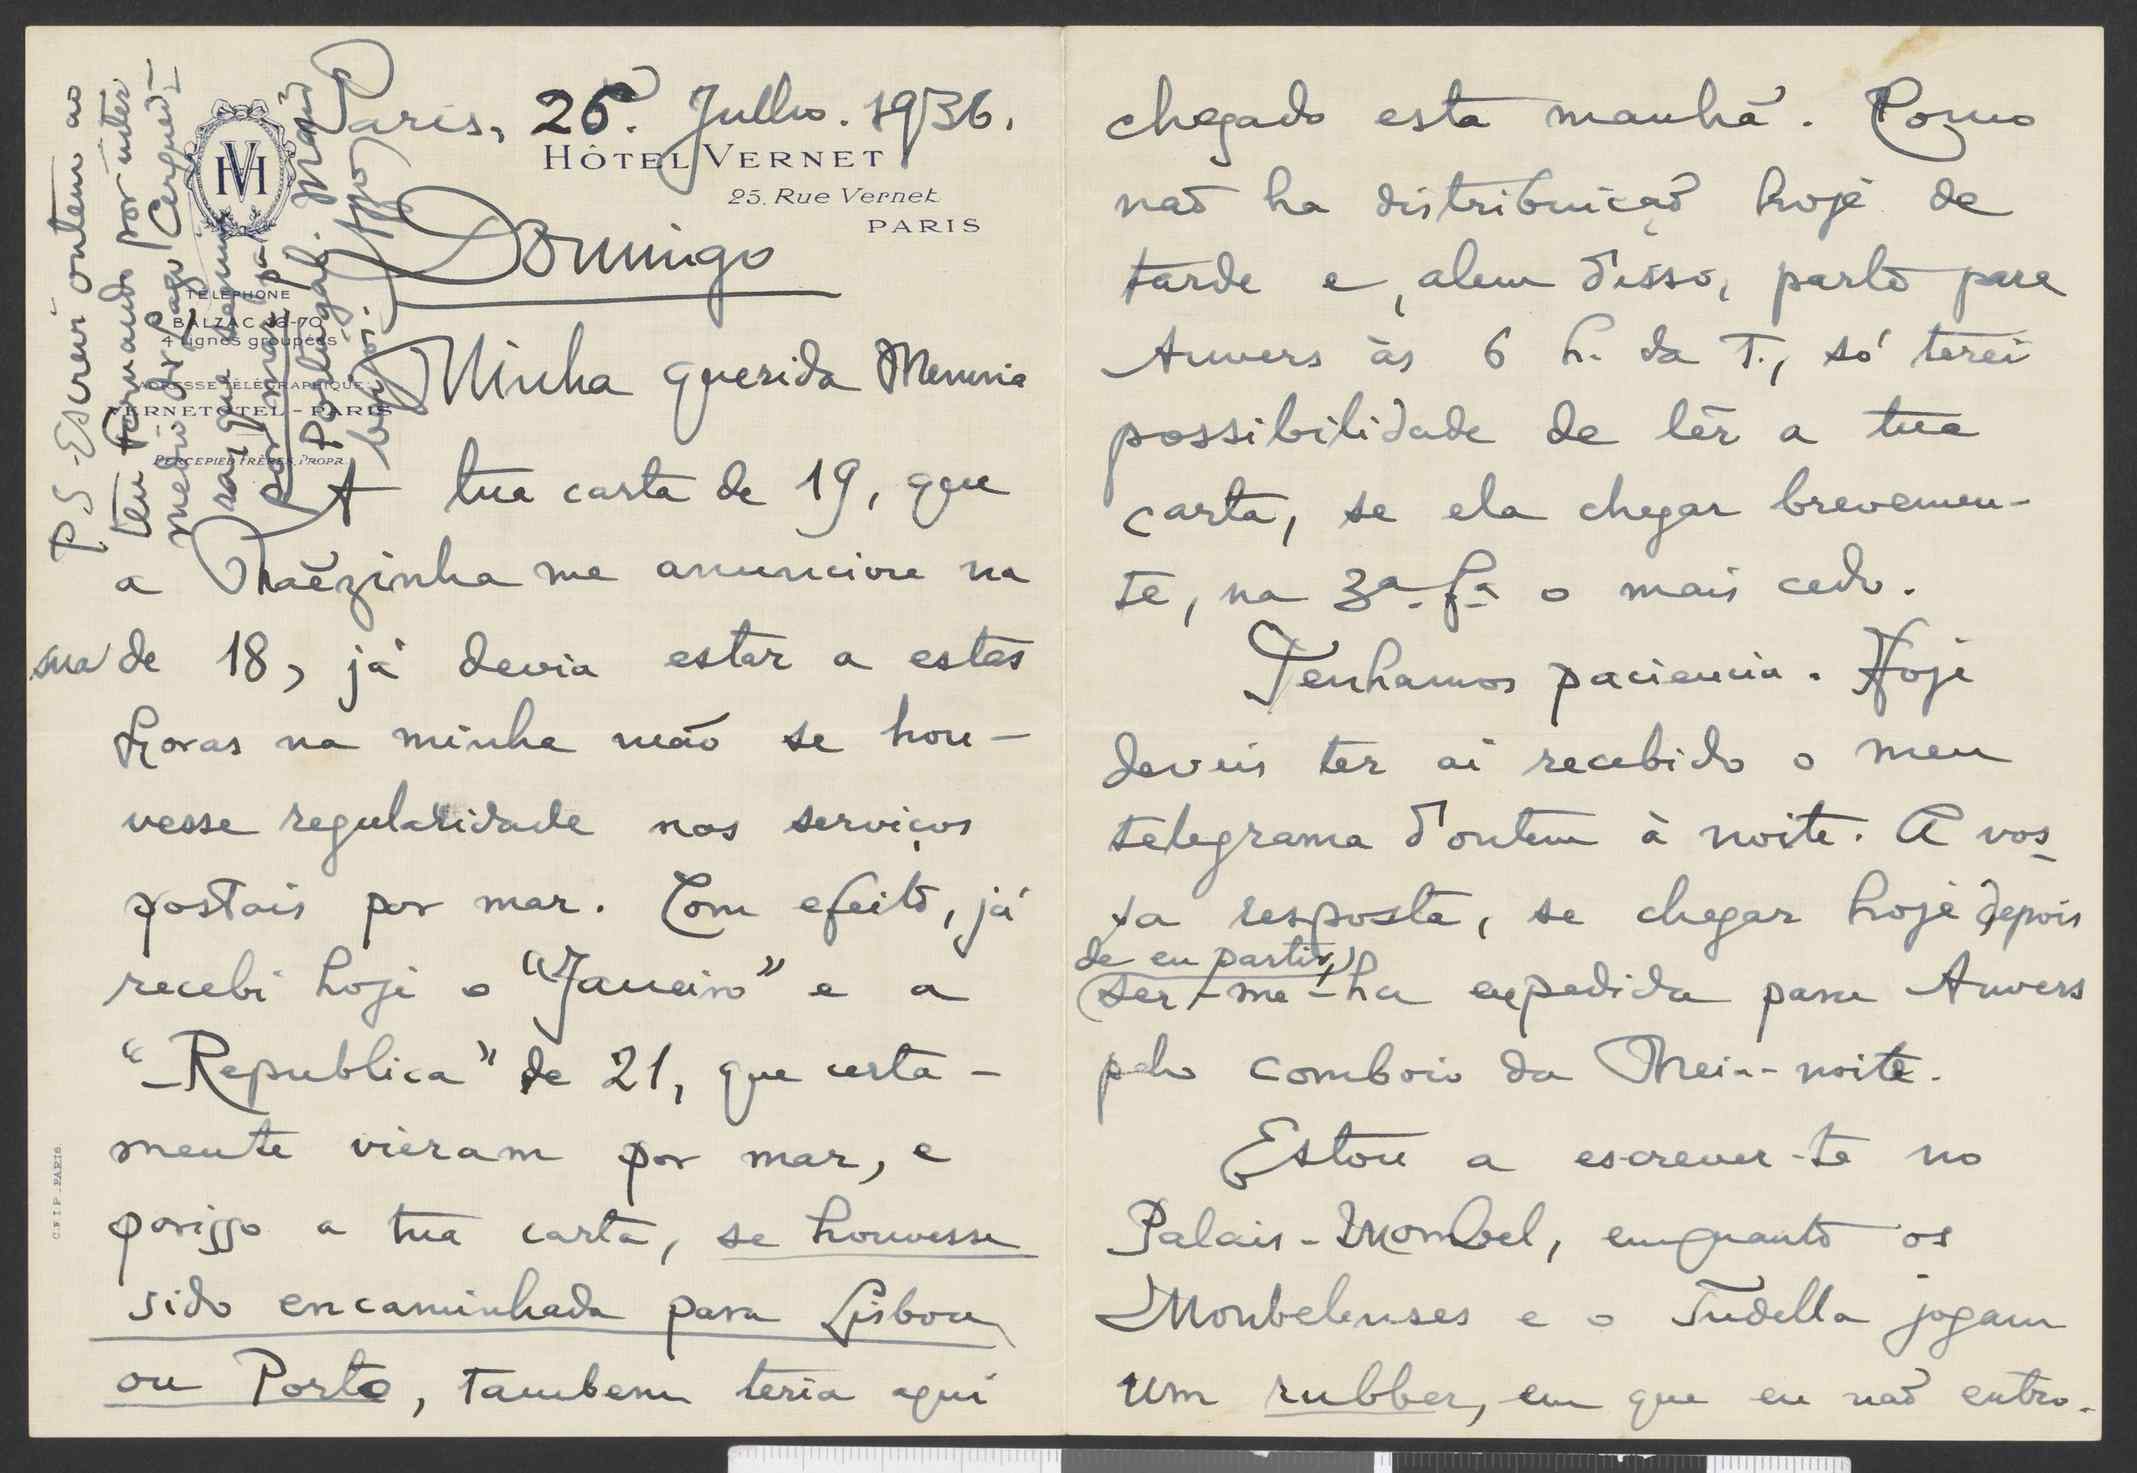 Paris, 26. Julho. 1936.
HÔTEL VERNET
25. Rue Vernet
PARIS
Domingo
HVH
TÉLÉPHONE
BALZAC 48-70
4 lignes groupées
ADRESSE TÉLÉGRAPHIQUE:
VERNETOTEL - PARIS
PERCEPIED FRÈRES, PROPR.
Minha querida Menina
A tua carta de 19, que
a Mãezinha me anunciou na
sua de 18, já devia estar a estas
horas na minha mão se hou-
vesse regularidade nos serviços
postais por mar. Com efeito, já
recebi hoje o "Janeiro" e a
"Republica" de 21, que certa-
mente vieram por mar, e
porisso a tua carta, se houvesse
sido encaminhada para Lisboa
ou Porto, tambem teria aqui
C.F.I.P. PARIS
P.S - Escrevi ontem ao
teu Fernando por inter
medio do Iago Cerqueira
que
por mar já
Portugal. Mais
beijos.
chegado esta manhã. Como
não ha distribuição hoje de
tarde e, alem disso, parto para
Anvers às 6 h. da T., só terei
possibilidade de lêr a tua
carta, se ela chegar brevemen-
te, na 3ª fª o mais cedo.
Tenhamos paciencia. Hoje
deveis ter aí recebido o meu
telegrama d'ontem à noite. A vos-
sa resposta, se chegar hoje depois
de eu partir,
ser-me-ha expedida para Anvers
pelo comboio da Meia-noite.
Estou a escrever-te no
Palais-Mombel, emquanto os
Monbelenses e o Tudella jogam
um rubber, em que eu não entro.